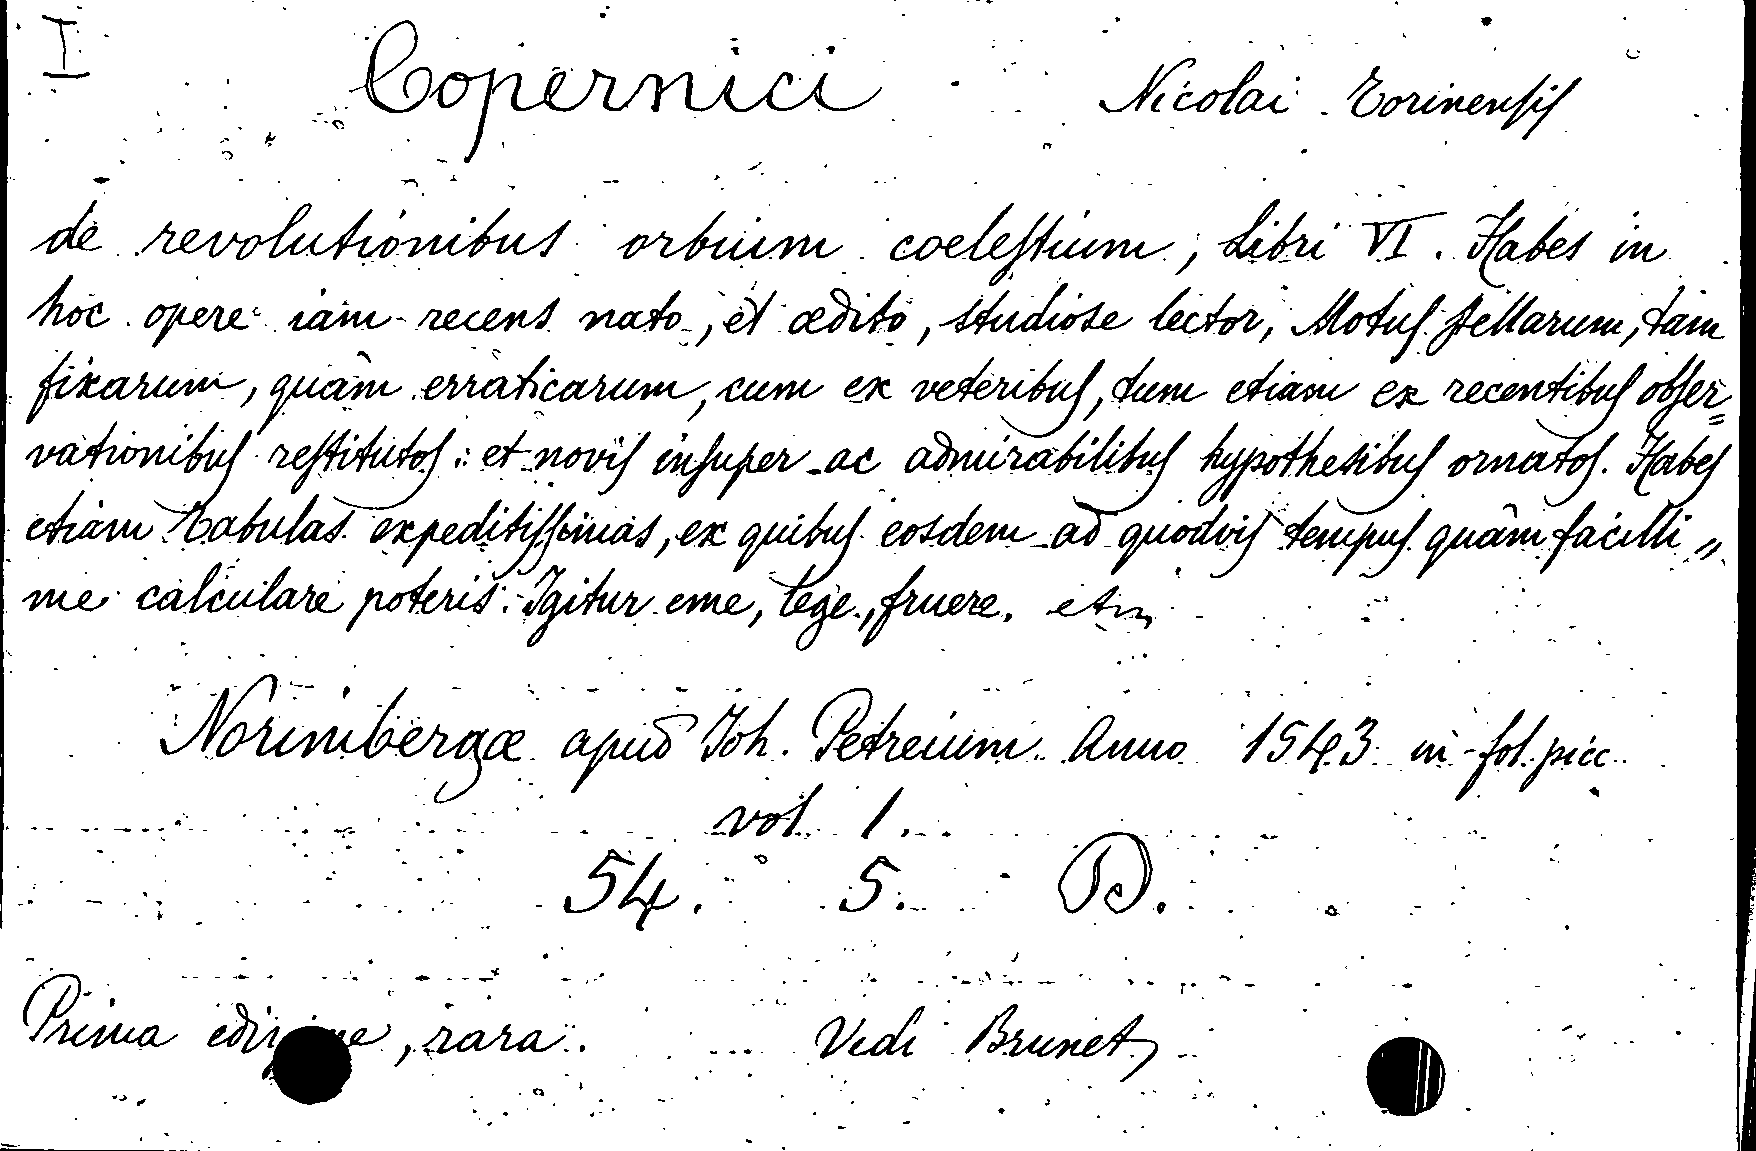 I
Copernici Nicolai Torinensis
de revolutionibus orbium coelestium, Libri VI. Habes in
hoc opere iam recens nato, et ædito, studiose lector, Motus stellarum, tam
fixarum, quâm erraticarum, cum ex veteribus, tum etiam ex recentibus obser=
vationibus restitutos: et novis insuper ac admirabilibus hypothesibus ornatos. Habes
etiam Tabulas expeditissimas, ex quibus eosdem ad quodvis tempus quâm facilli„
me calculare poteris. Igitur eme, lege, fruere. etc
Norimbergæ apud Joh. Petreium. Anno 1543 in-fol. picc.
vol 1.
54. 5.
Prima , rara. Vedi Brunet